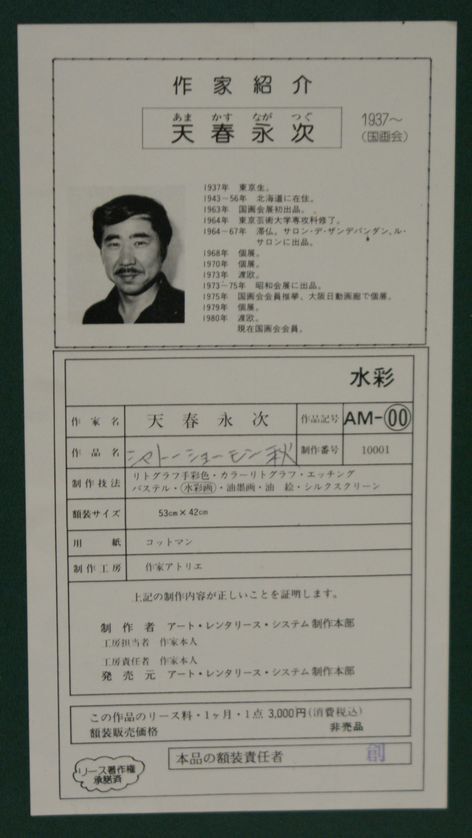 作家紹介
あま かす なが つぐ
天春永次
1937〜
(国画会)
1937年 東京生。
1943−56年 北海道に在住。
1963年 国画会展初出品。
1964年 東京芸術大学専攻科修了。
1964−67年 滞仏。サロン・デ・ザンデパンダン、ル・
サロンに出品。
1968年 個展。
1970年 個展。
1973年 渡欧。
1973−75年 昭和会展に出品。
1975年 国画会会員推挙、大阪日動画廊で個展。
1979年 個展。
1980年 渡欧。
現在国画会会員。
水彩
作家名 天春永次 作品記号 AM-00
作品名 シャトーショーモン秋 制作番号 10001
制作技法 リトグラフ手彩色・カラーリトグラフ・エッチング
パステル・水彩画・油墨画・油 絵・シルクスクリーン
額装サイズ 53cm×42cm
用紙 コットマン
制作工房 作家アトリエ
上記の制作内容が正しいことを証明します。
制作者 アート・レンタリース・システム制作本部
工房担当者 作家本人
工房責任者 作家本人
発売元 アート・レンタリース・システム制作本部
この作品のリース料・1ヶ月・1点 3,000円(消費税込)
額装販売価格 非売品
リース著作権
承諾済
本品の額装責任者 創